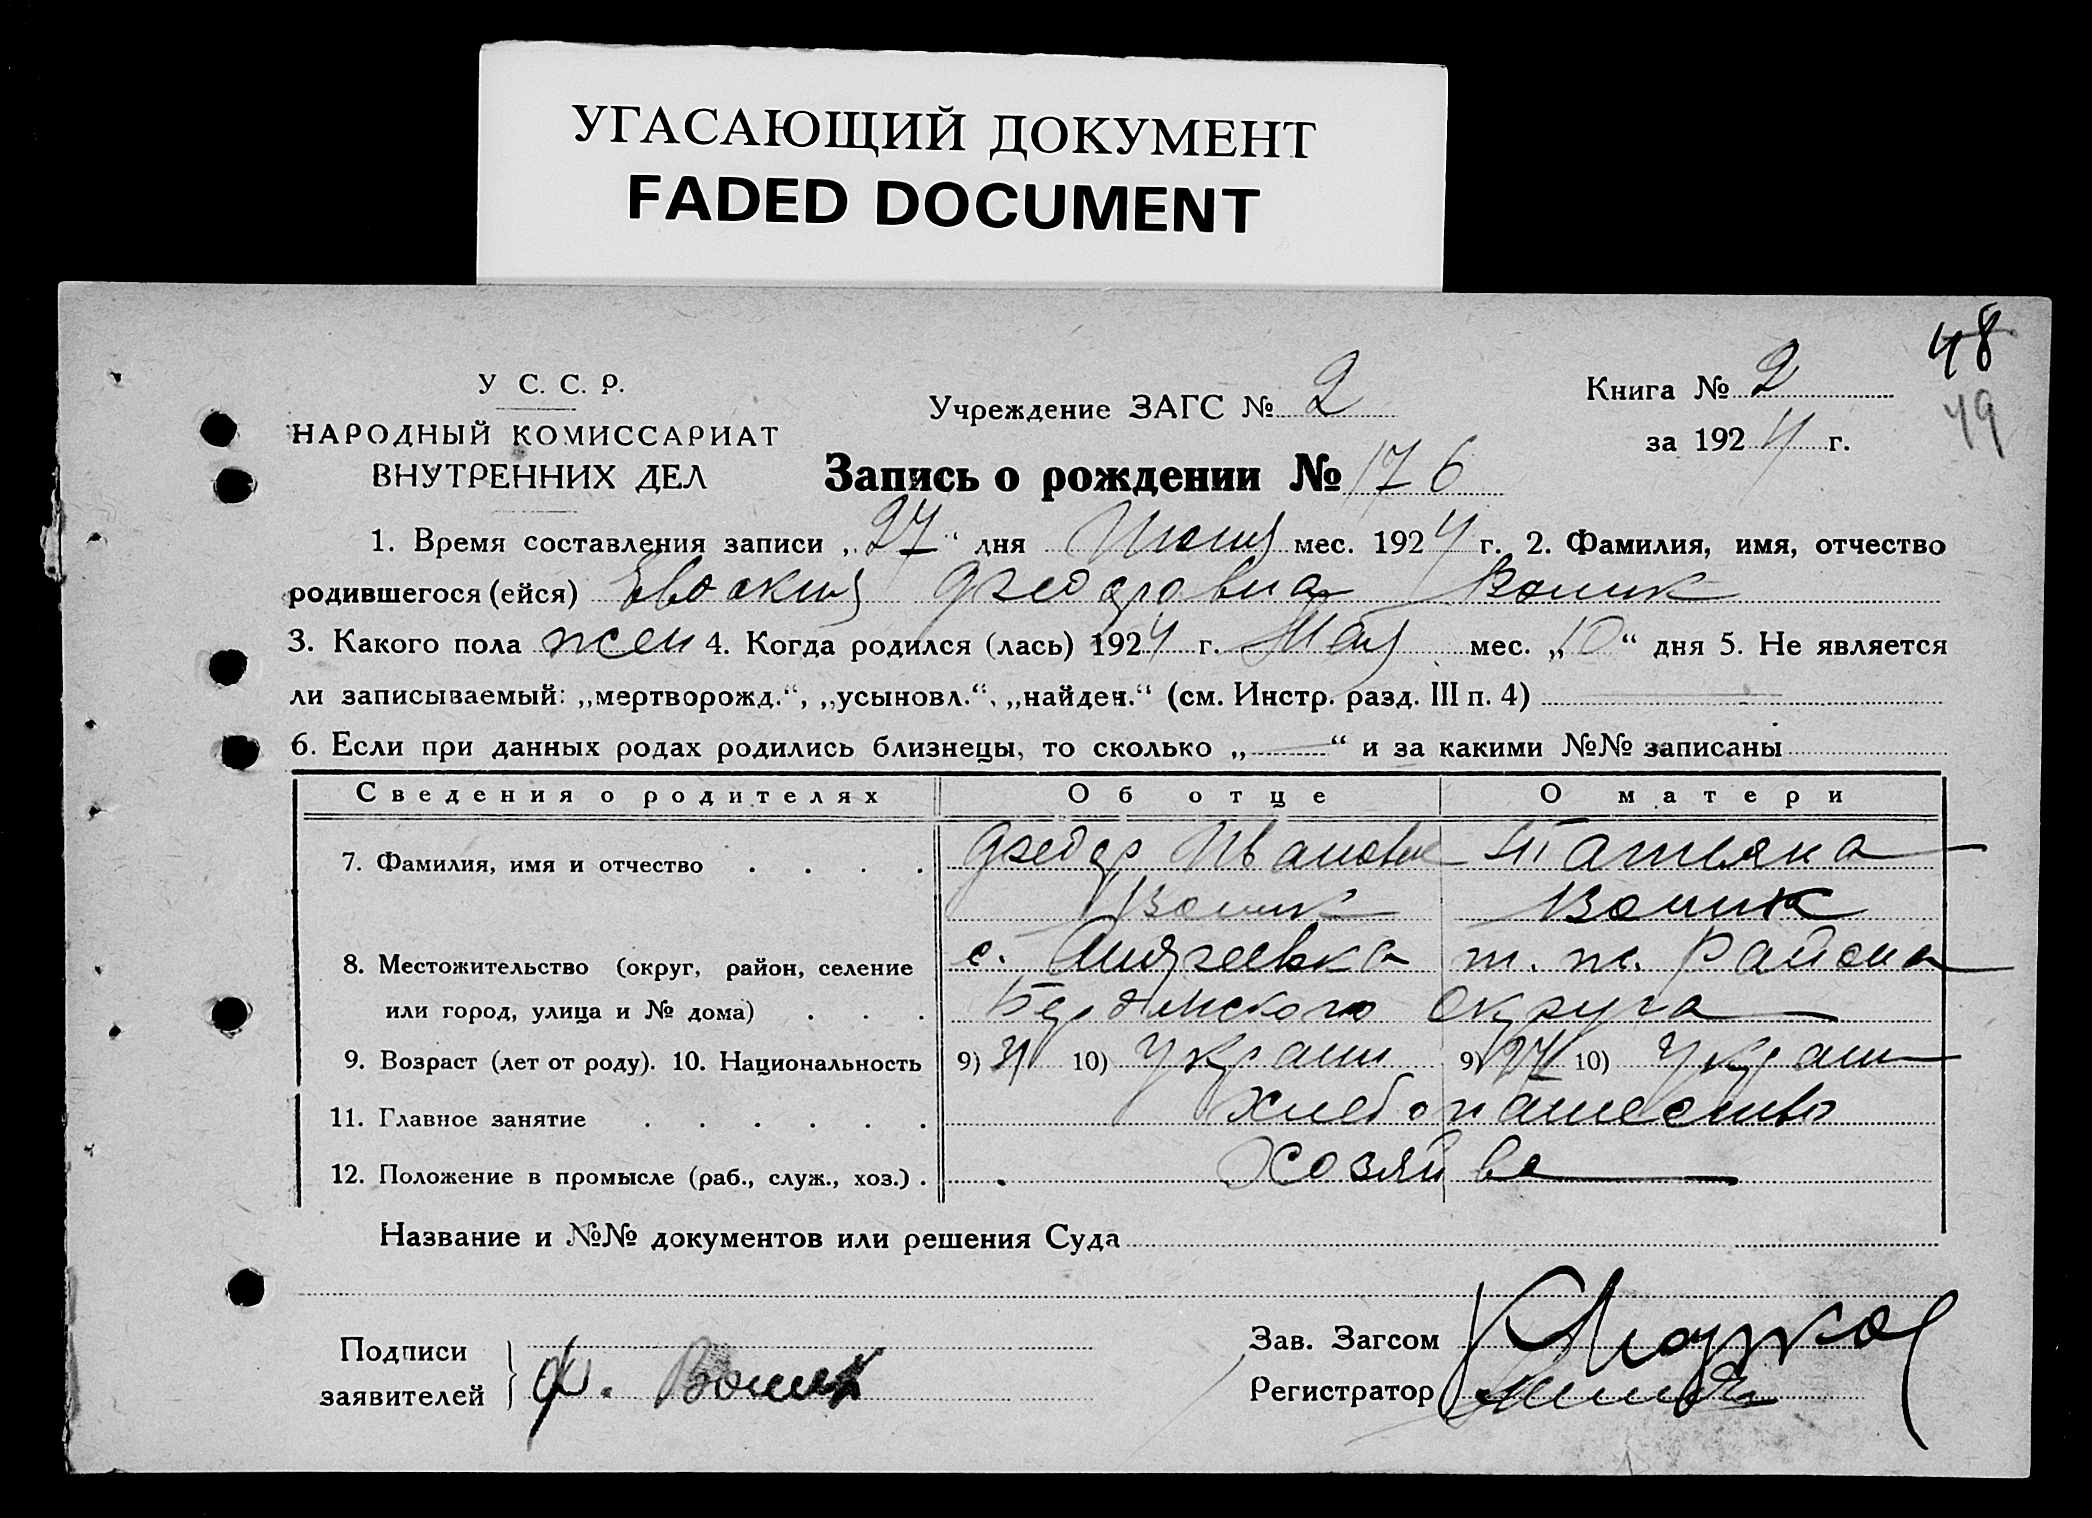 УГАСАЮЩИЙ ДОКУМЕНТ
FADED DOCUMENT
48
49
У С. С. Р.
НАРОДНЫЙ КОМИССАРИАТ
ВНУТРЕННИХ ДЕЛ
Учреждение ЗАГС № 2
Книга № 2
за 1924 г.
Запись о рождении № 176
1. Время составления записи „27“ дня мес. 1924 г. 2. Фамилия, имя, отчество
родившегося (ейся) Евдокия Феодоровна Волик
3. Какого пола жен 4. Когда родился (лась) 1924 г. Мая мес. „10“ дня 5. Не является
ли записываемый: „мертворожд.“, „усыновл.“, „найден.“ (см. Инстр. разд. III п. 4)
6. Если при данных родах родились близнецы, то сколько „—“ и за какими №№ записаны
Сведения о родителях Об отце О матери
7. Фамилия, имя и отчество . . . . Феодор Иванович Татьяна
Волик Волик
8. Местожительство (округ, район, селение с. Андреевка т. ж. района
или город, улица и № дома) . . . Бердянского округа
9. Возраст (лет от роду). 10. Национальность 9) 31 10) Украин 9) 27 10) Украин
11. Главное занятие . . . . . . хлебопашество
12. Положение в промысле (раб., служ., хоз.) . Хозяйва
Название и №№ документов или решения Суда
Подписи
заявителей
Ф. Волик
Зав. Загсом
Регистратор